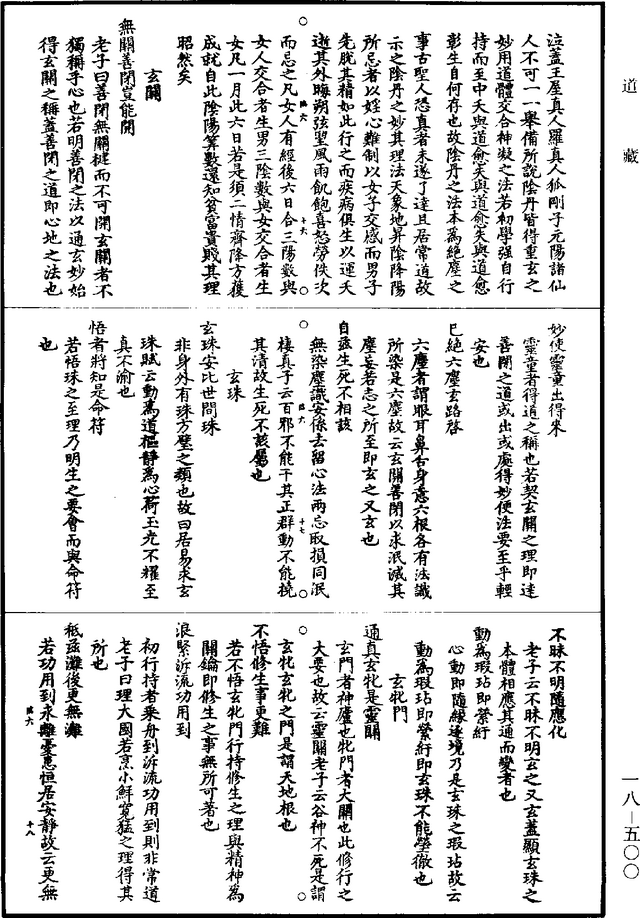 道藏
泣蓋王屋真人羅真人狐剛子元陽諸仙
人不可一一舉備所說陰丹皆得重玄之
妙用道體交合神凝之法若初學強自行
持而至中夭與道愈矣與道愈矣與道愈
彰生自何存也故陰丹之法本為絕塵之
事古聖人恐真者未遂了達且居常道故
示之陰丹之妙其理法天象地昇陰降陽
所忌者以婬心難制以女子交感而男子
先脫其精如此行之而疾病俱生以運夭
逝其外晦朔弦望風雨飢飽喜怒勞佚次
而忌之凡女人有經後六日合三陽數與
女人交合者生男三陰數與女交合者生
女凡一月此六日若是須二情齊降方獲
成就自此陰陽筭數還知貧富貴賤其理
昭然矣
玄關
無關善閉豈能開
老子曰善閉無關揵而不可開玄關者不
獨稱乎心也若明善閉之法以通玄妙始
得玄關之稱蓋善閉之道即心地之法也
妙使靈童出得來
靈童者得道之稱也若契玄關之理即達
善閉之道或出或處得妙便法要至乎輕
安也
已絕六塵玄路啓
六塵者謂眼耳鼻舌身意六根各有法識
所染是六塵故云玄關善閉以求泯滅其
塵妄若志之所至即玄之又玄也
自無生死不相該
無染塵識安係去留心法兩忘取損同泯
棲真子云百邪不能干其正群動不能撓
其清故生死不該屬也
玄珠
玄珠安比世間珠
非身外有珠方璧之類也故曰居易求玄
珠賦云動為道樞靜為心符玉光不耀至
真不渝也
悟者將知是命符
若悟珠之至理乃明生之要會而與命符
也
不昧不明隨應化
老子云不昧不明玄之又玄蓋顯玄珠之
本體相應其通而變者也
動為瑕玷即縈紆
心動即隨緣逐境乃是玄珠之瑕玷故云
動為瑕玷即縈紆即玄珠不能瑩徹也
玄牝門
通真玄牝是靈關
玄門者神廬也牝門者大關也此修行之
大要也故云靈關老子云谷神不死是謂
玄牝玄牝之門是謂天地根也
不悟修生事更難
若不悟玄牝門行持修生之理與精神為
關鑰即修生之事無所可著也
浪緊泝流功用到
初行持者乘舟到泝流功用到則非常道
老子曰理大國若烹小鮮寬猛之理得其
所也
秪茲灘後更無灘
若功用到永離憂患恒居安靜故云更無
一八—五〇〇